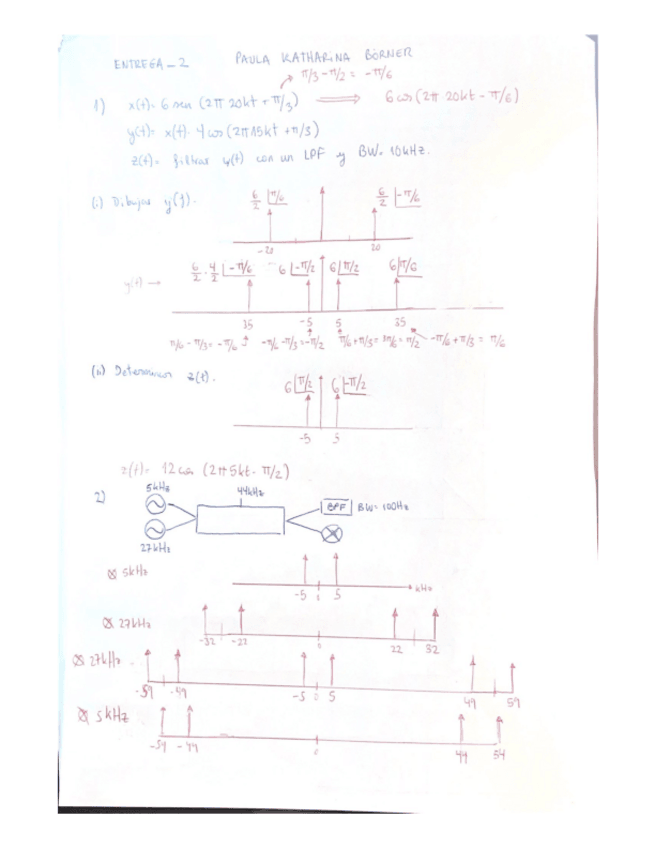 ENTREGA_2 PAULA KATHARINA BÖRNER
π/3-π/2 = -π/6
1) x(t)= 6 sen (2π 20kt + π/3) ⟹ 6 cos (2π 20kt - π/6)
y(t)= x(t)· 4 cos (2π15kt +π/3)
z(t)= filtrar y(t) con un LPF y BW= 10kHz.
(i) Dibujar y(f).
6/2 |π/6 6/2 |-π/6
-20 20
y(t) → 6/2 · 4/2 |-π/6 6|-π/2 6|π/2 6|π/6
35 -5 5 35
π/6 - π/3 = -π/6 -π/6 -π/3 = -π/2 π/6 + π/3 = 3π/6 = π/2 -π/6 + π/3 = π/6
(ii) Determinar z(t).
6|π/2 6|-π/2
-5 5
z(t)= 12 cos (2π5kt - π/2)
2) 5kHz 44kHz
BPF BW= 100Hz
27kHz
⊗ 5kHz
-5 0 5 kHz
⊗ 27kHz
-32 -22 0 22 32
⊗ 27kHz
-59 -49 -5 0 5 49 59
⊗ 5kHz
-54 -44 0 44 54